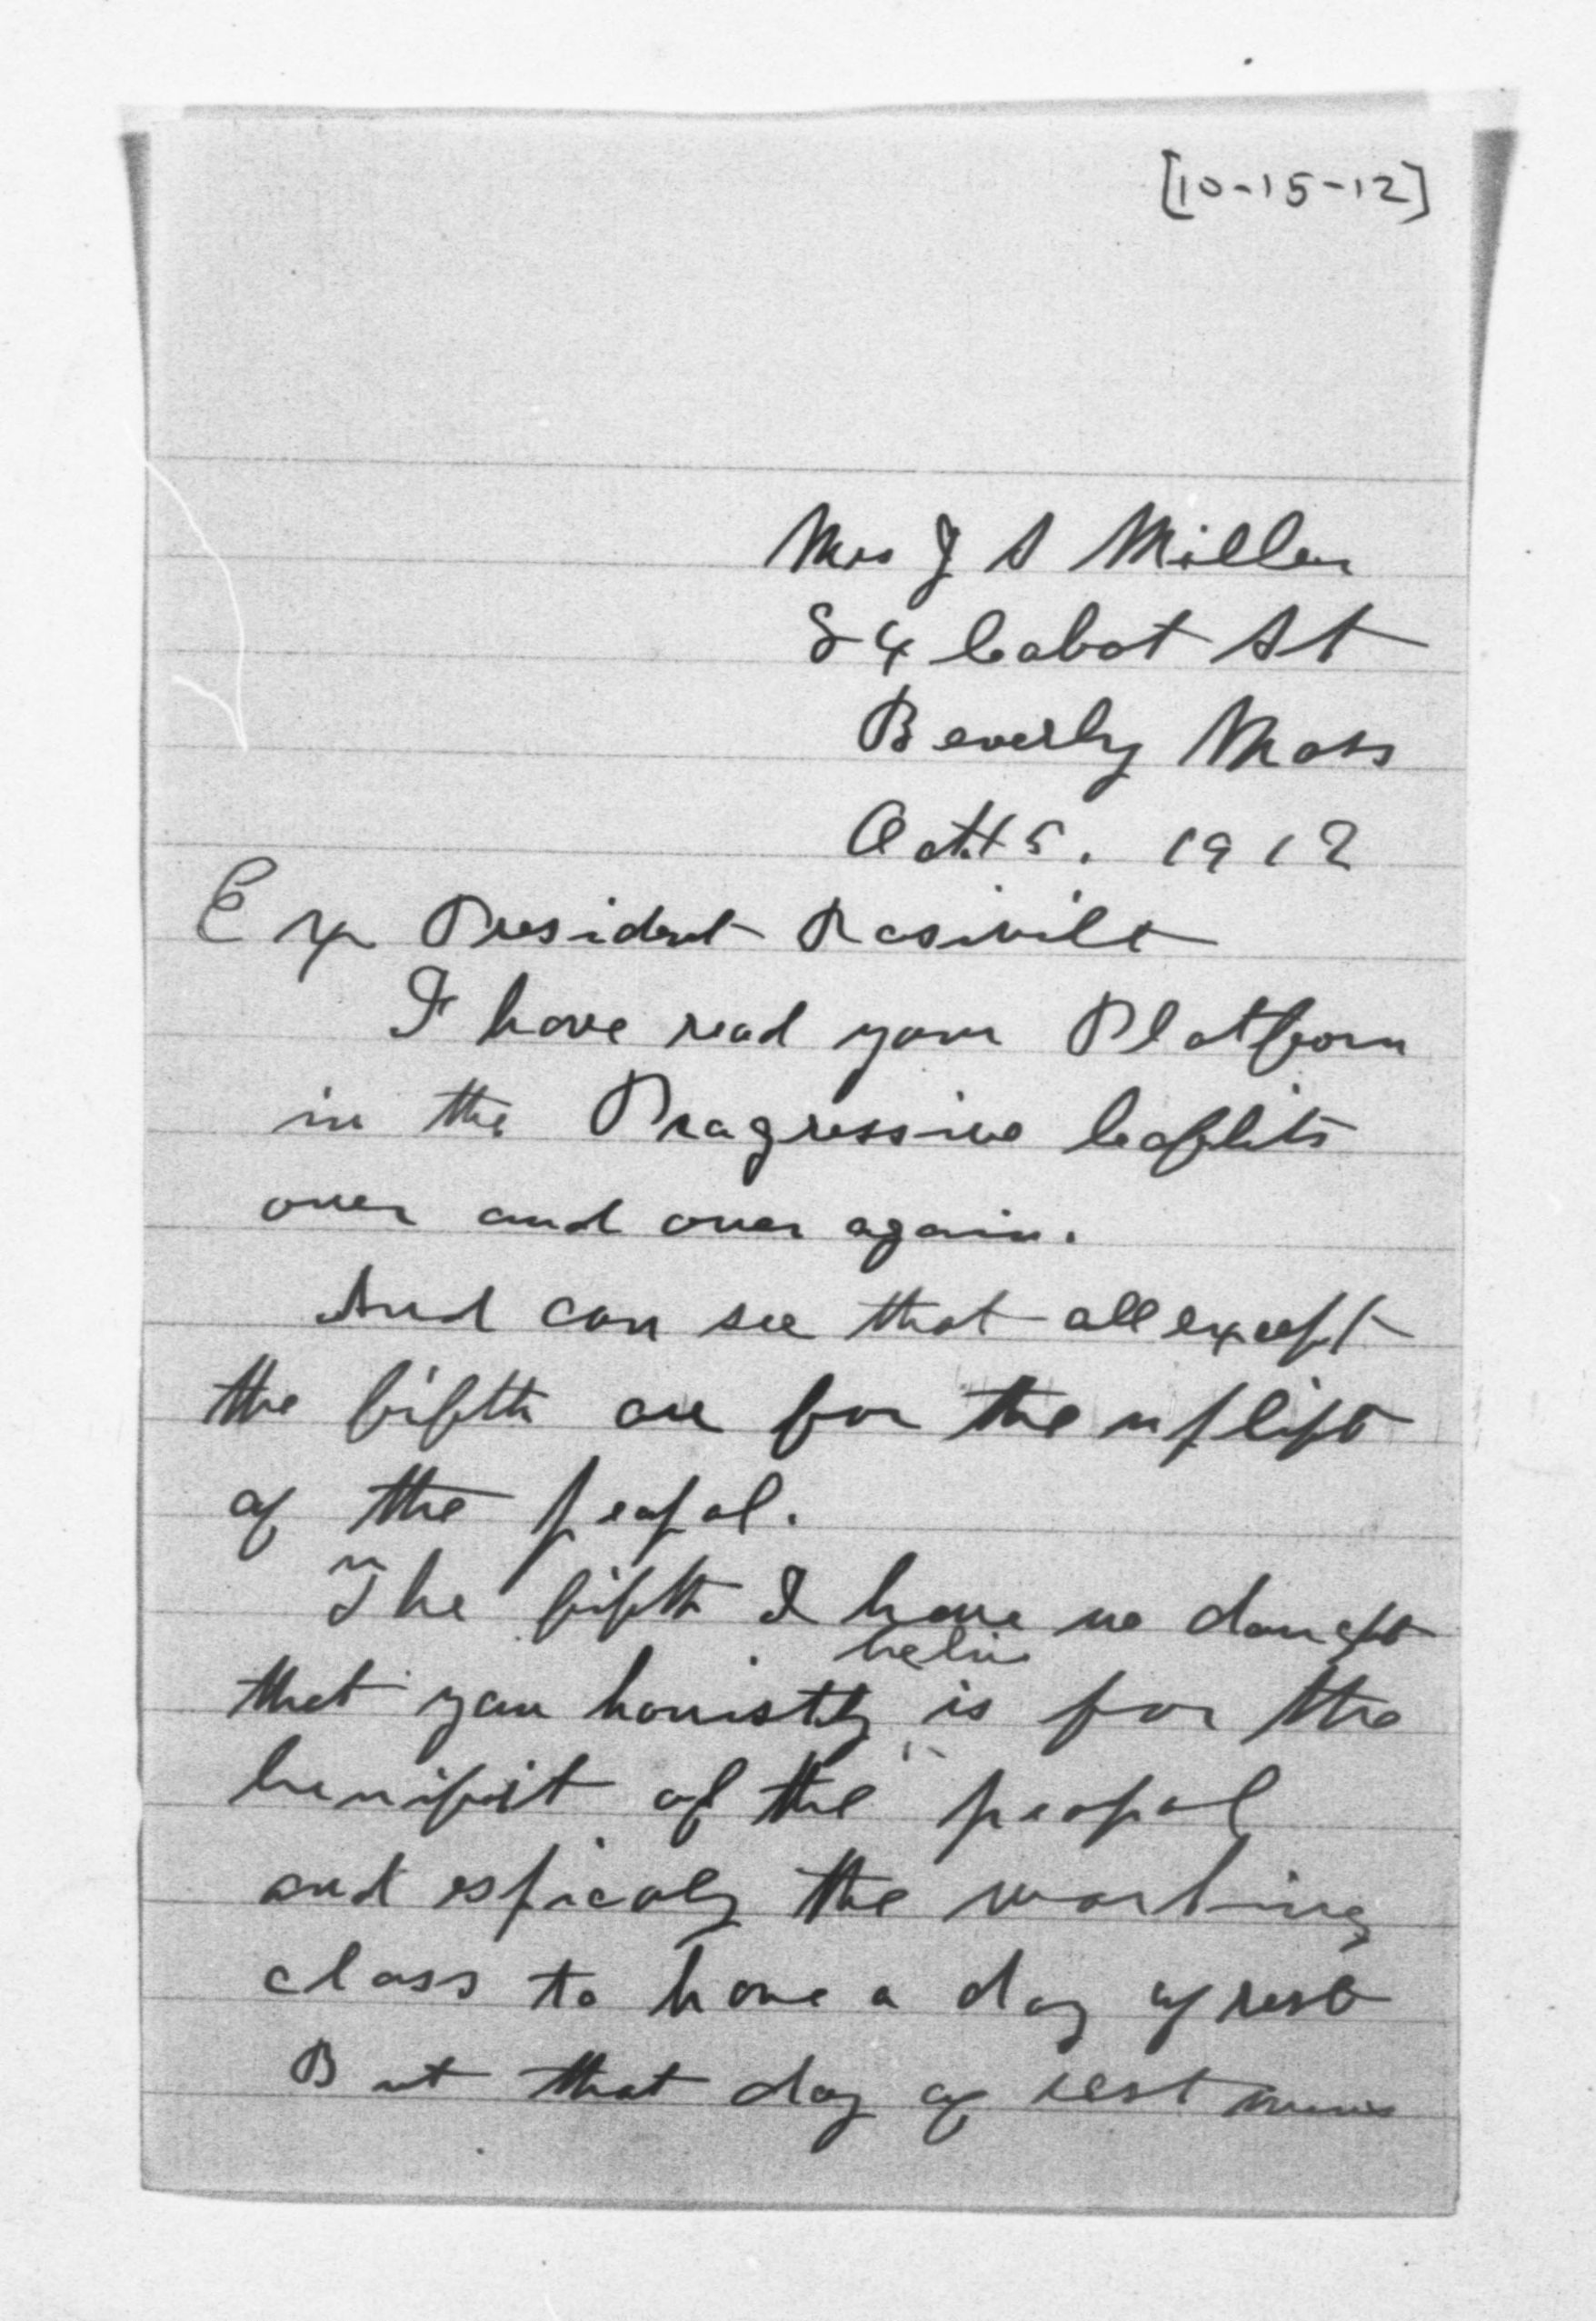 [10-15-12]
Mrs J S Miller
84 Cabot St
Beverly Mass
Oct 15. 1912
Ex President Rosivilt
I have read your Platform
in the Progressive leaflits
over and over again.
And can see that all except
the fifth are for the uplift
of the peapal.
The fifth I have no
belive
that you honistly is for the
benifit of the peopal
and espicaly the working
class to have a day of rest
But that day of rest means